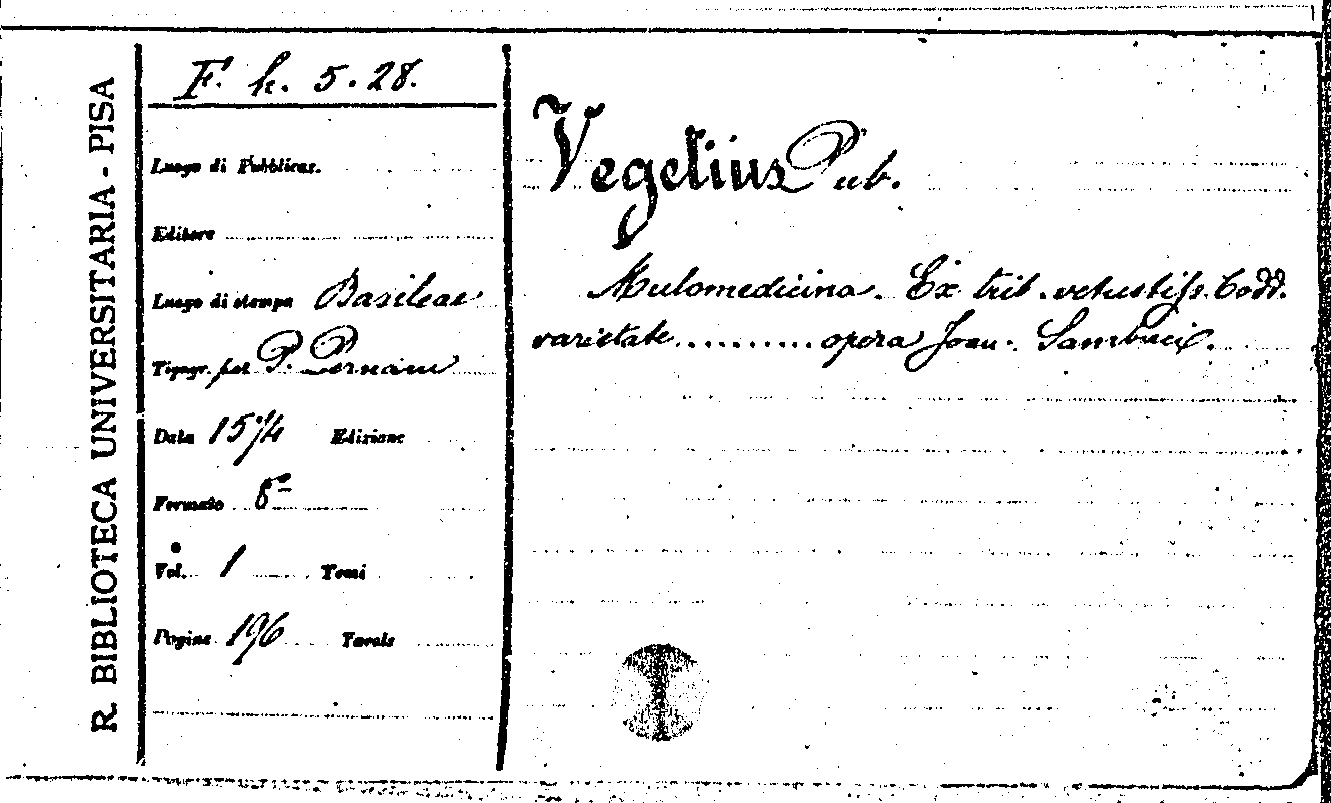 R. BIBLIOTECA UNIVERSITARIA - PISA
F. h. 5. 28.
Luogo di Pubblicaz.
Editore
Luogo di stampa Basileae
Tipogr. per P. Pernam
Data 1574 Edizione
Formato 8º
Vol. 1 Tomi
Pagine 196 Tavole
Vegetius Pub.
Mulomedicina. Ex trib. vetustiss. Codd.
varietate .......... opera Joan. Sambuci.